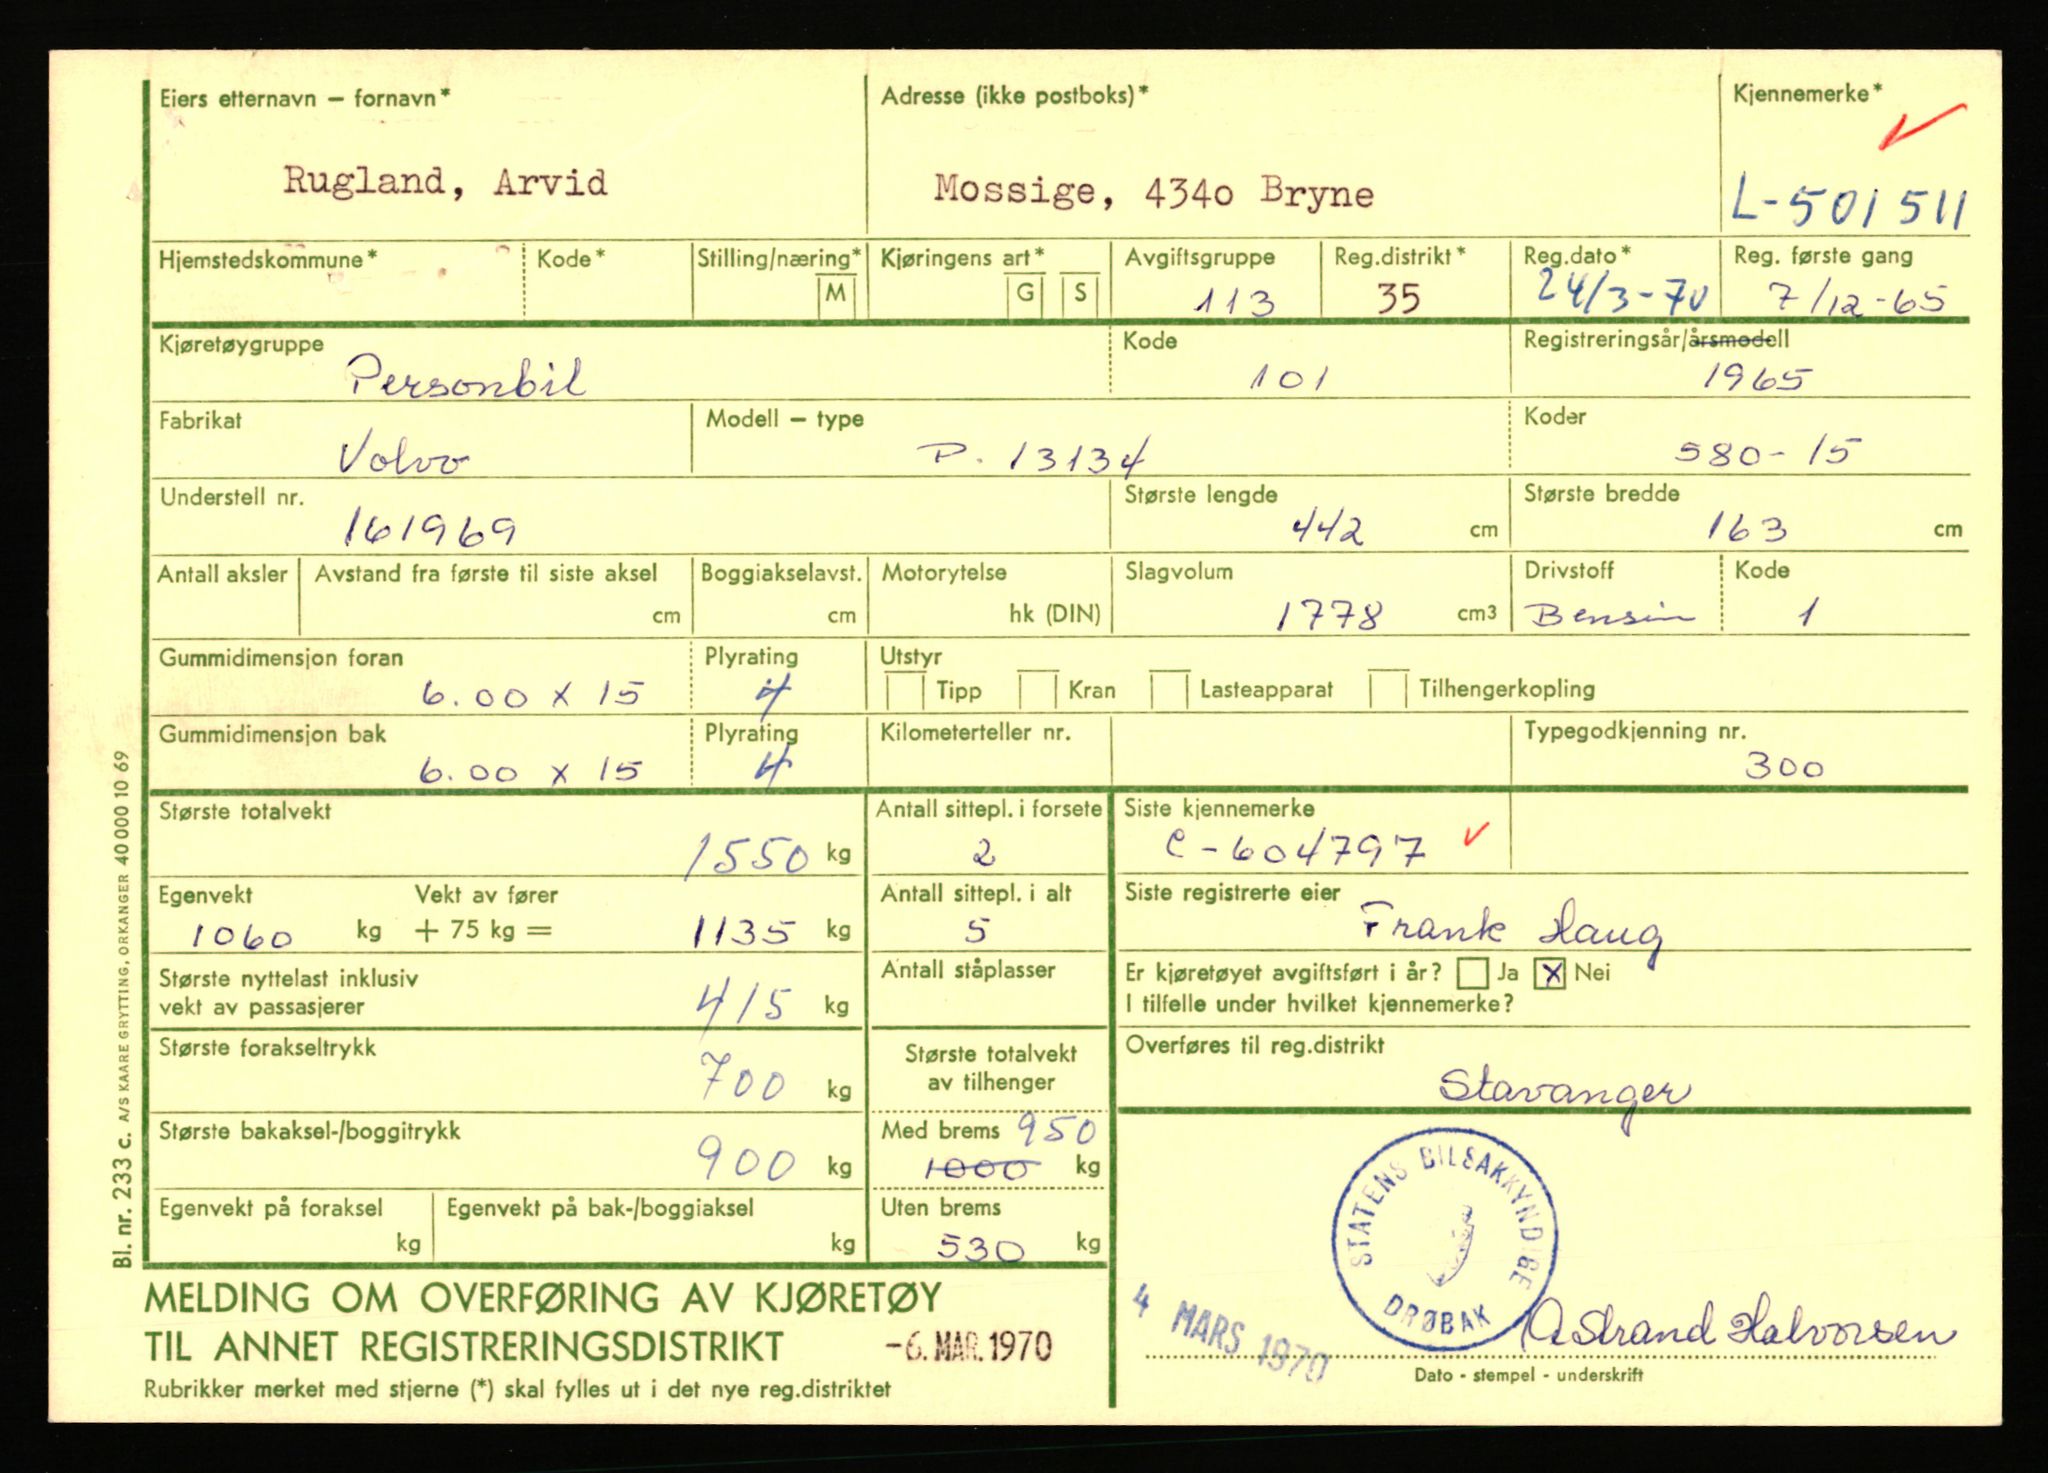 Eiers etternavn – fornavn*
Rugland, Arvid
Adresse (ikke postboks)*
Mossige, 4340 Bryne
Kjennemerke*
L-501511
Hjemstedskommune*
Kode*
Stilling/næring*
M
Kjøringens art*
G S
Avgiftsgruppe
113
Reg.distrikt*
35
Reg.dato*
24/3-70
Reg. første gang
7/12-65
Kjøretøygruppe
Personbil
Kode
101
Registreringsår/årsmodell
1965
Fabrikat
Volvo
Modell – type
P. 13134
Koder
580-15
Understell nr.
161969
Største lengde
442 cm
Største bredde
163 cm
Antall aksler
Avstand fra første til siste aksel
cm
Boggiakselavst.
cm
Motorytelse
hk (DIN)
Slagvolum
1778 cm3
Drivstoff
Bensin
Kode
1
Gummidimensjon foran
6.00 x 15
Plyrating
4
Utstyr
Tipp Kran Lasteapparat Tilhengerkopling
Gummidimensjon bak
6.00 x 15
Plyrating
4
Kilometerteller nr.
Typegodkjenning nr.
300
Største totalvekt
1550 kg
Antall sittepl. i forsete
2
Siste kjennemerke
C-604797
Egenvekt Vekt av fører
1060 kg + 75 kg = 1135 kg
Antall sittepl. i alt
5
Siste registrerte eier
Frank Haug
Største nyttelast inklusiv
vekt av passasjerer
415 kg
Antall ståplasser
Er kjøretøyet avgiftsført i år? Ja x Nei
I tilfelle under hvilket kjennemerke?
Største forakseltrykk
700 kg
Største totalvekt
av tilhenger
Overføres til reg.distrikt
Stavanger
Største bakaksel-/boggitrykk
900 kg
Med brems 950
1000 kg
Egenvekt på foraksel
kg
Egenvekt på bak-/boggiaksel
kg
Uten brems
530 kg
STATENS BILSAKKYNDIGE
DRØBAK
4 MARS 1970
Astrand Halvorsen
Dato - stempel - underskrift
MELDING OM OVERFØRING AV KJØRETØY
TIL ANNET REGISTRERINGSDISTRIKT
-6. MAR. 1970
Rubrikker merket med stjerne (*) skal fylles ut i det nye reg.distriktet
Bl. nr. 233 c. A/S KAARE GRYTTING, ORKANGER 40 000 10 69